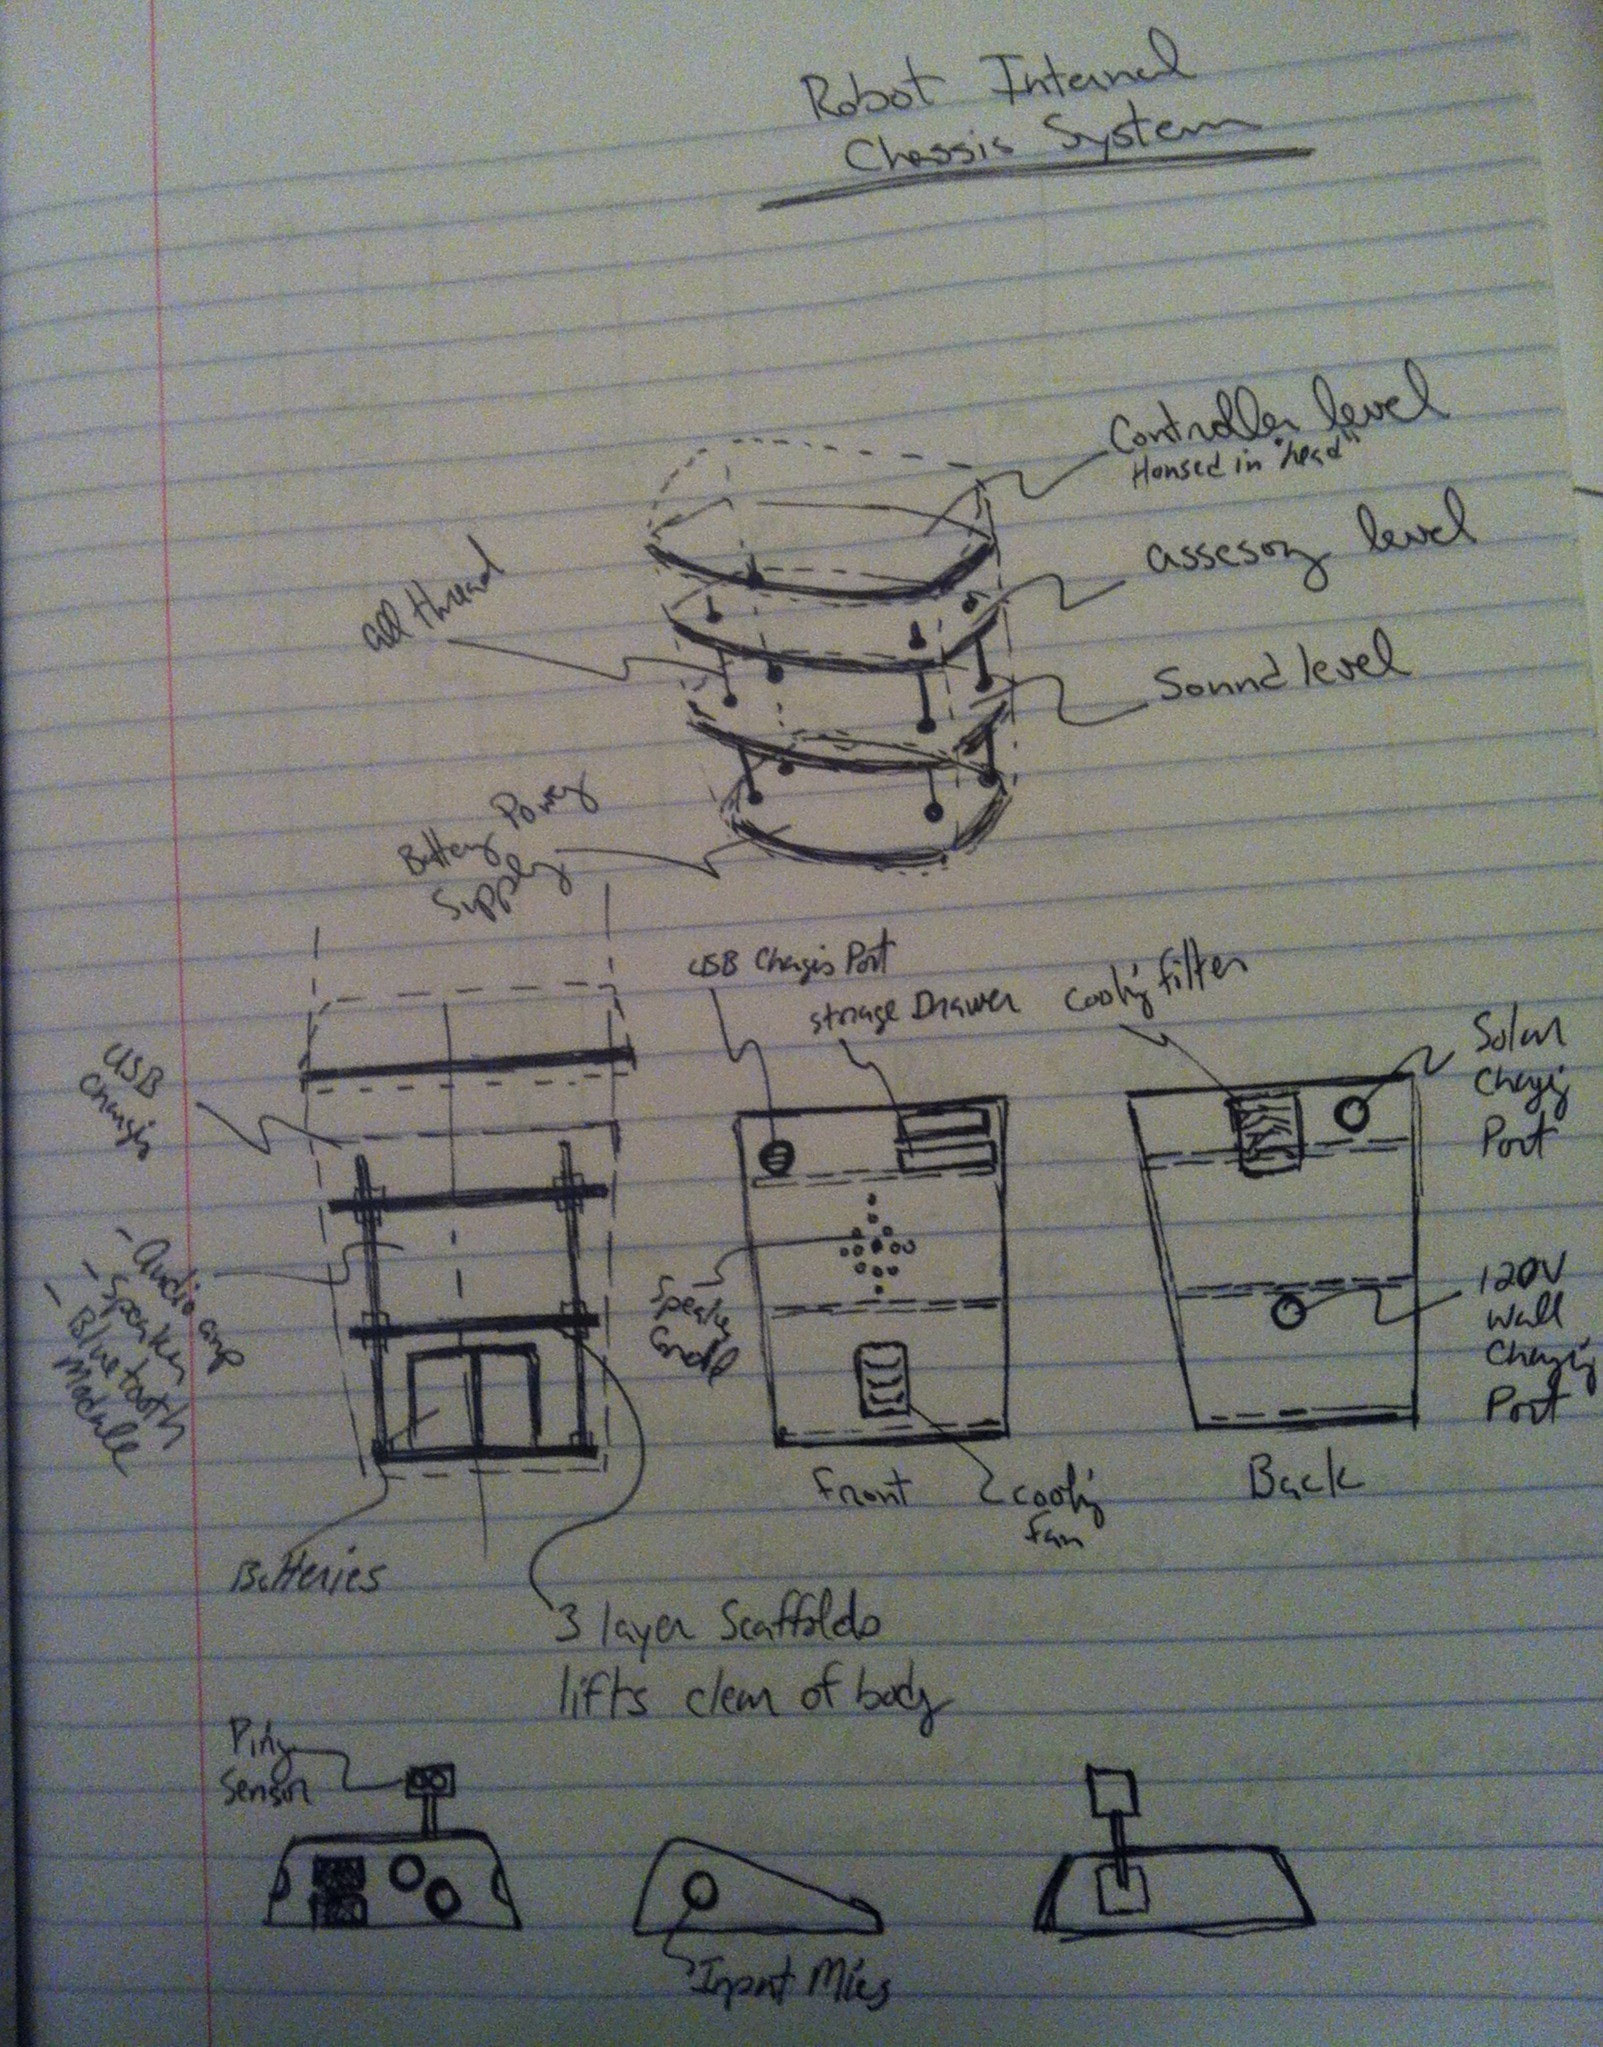 Robot Internal
Chassis System
Controller level
Housed in "head"
assesory level
all thread
Sound level
Battery Power
Supply
USB Chargin Port
storage Drawer
cooling filter
Solar
Charging
Port
USB
Charging
- Audio amp
- Speaker
- Bluetooth
module
Speaker
Grill
120V
Wall
Charging
Port
Front
cooling
fan
Back
Batteries
3 layer Scaffolds
lifts clear of body
Ping
Sensor
Input Mics